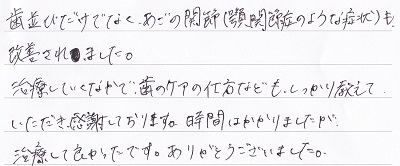 歯並びだけでなく、あごの関節(顎関節症のような症状)も、
改善されました。
治療していくなかで、歯のケアの仕方なども、しっかり教えて
いただき、感謝しております。時間はかかりましたが、
治療して良かったです。ありがとうございました。